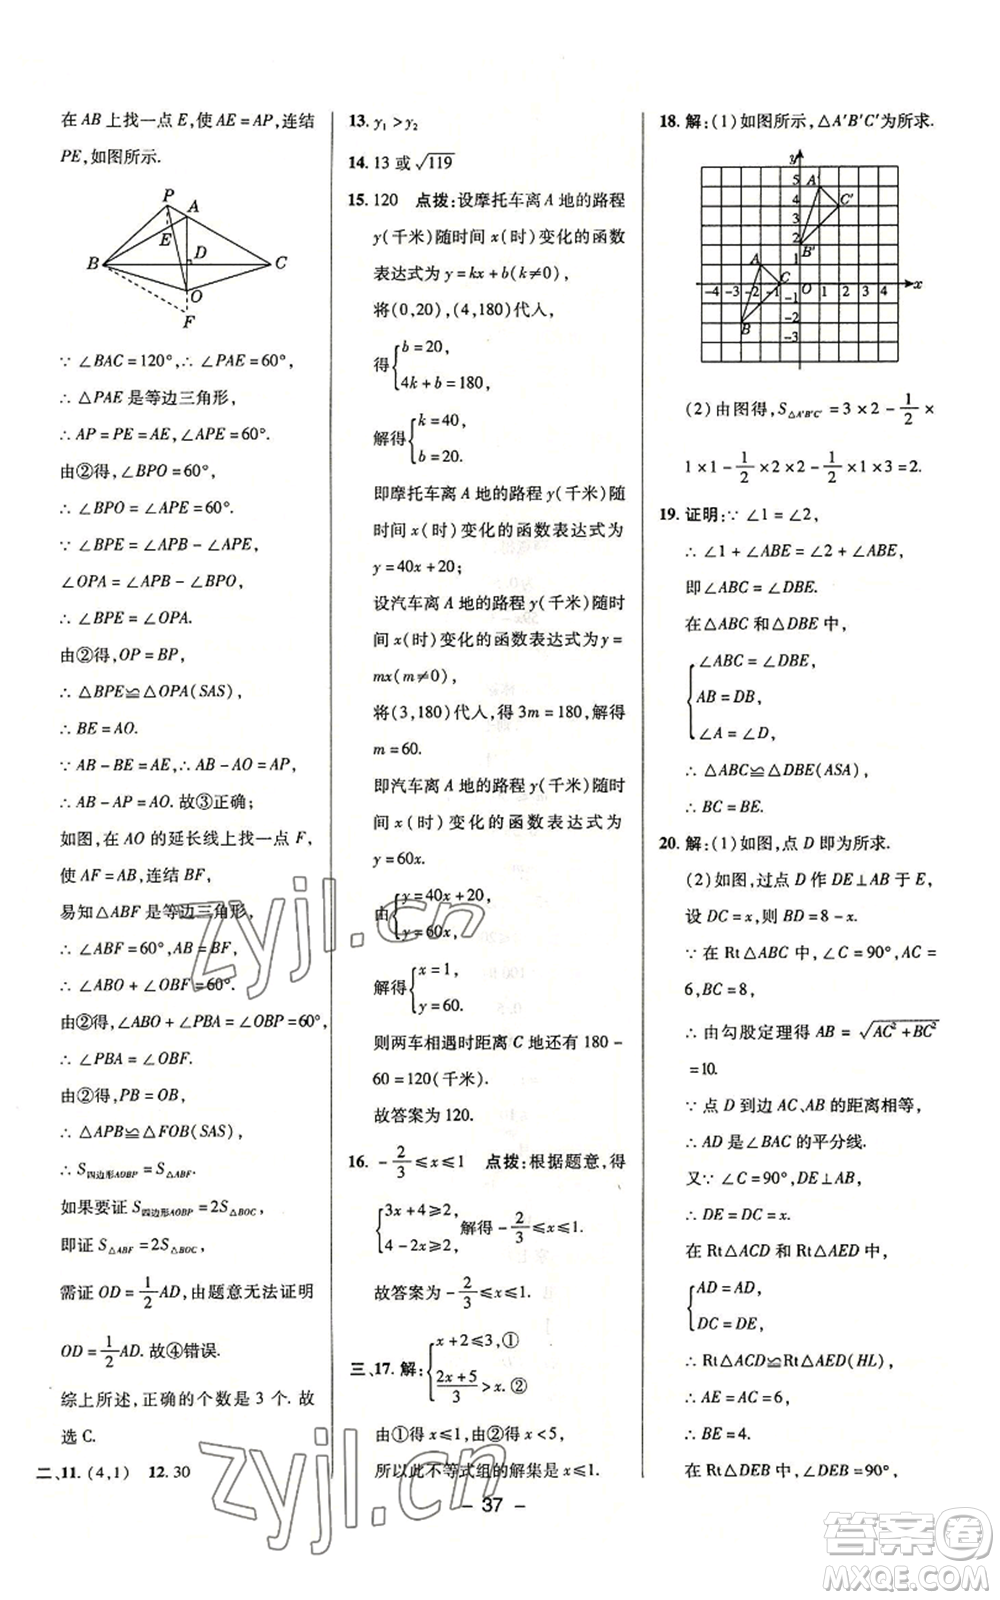 在 AB 上找一点 E,使 AE = AP,连结
PE,如图所示.
P
A
E
D
B
C
O
F
∵ ∠BAC = 120°,∴ ∠PAE = 60°,
∴ △PAE 是等边三角形,
∴ AP = PE = AE,∠APE = 60°.
由②得,∠BPO = 60°,
∴ ∠BPO = ∠APE,
∵ ∠BPE = ∠BPO - ∠OPE,
∠OPA = ∠APE - ∠OPE,
∴ ∠BPE = ∠OPA.
由②得,OP = BP,
∴ △BPE≌△OPA(SAS),
∴ BE = AO.
∵ AB - BE = AE,∴ AB - AO = AP,
∴ AB - AP = AO. 故③正确;
如图,在 AO 的延长线上找一点 F,
使 AF = AB,连结 BF,
易知△ABF 是等边三角形,
∴ ∠ABF = 60°,AB = BF,
∴ ∠ABO + ∠OBF = 60°.
由②得,∠ABO + ∠PBA = ∠OBP = 60°,
∴ ∠PBA = ∠OBF.
由②得,PB = OB,
∴ △APB≌△FOB(SAS),
∴ S四边形AOBP = S△ABF.
如果要证 S四边形AOBP = 2S△BOC,
即证 S△ABF = 2S△BOC,
需证 OD = 1/2 AD,由题意无法证明
OD = 1/2 AD. 故④错误.
综上所述,正确的个数是 3 个. 故
选 C.
二、11. (4,1) 12. 30
13. y₁ > y₂
14. 13 或 √119
15. 120 点拨:设摩托车离 A 地的路程
y(千米)随时间 x(时)变化的函数
表达式为 y = kx + b(k≠0),
将(0,20),(4,180)代人,
得{b = 20,
4k + b = 180,
解得{k = 40,
b = 20.
即摩托车离 A 地的路程 y(千米)随
时间 x(时)变化的函数表达式为
y = 40x + 20;
设汽车离 A 地的路程 y(千米)随时
间 x(时)变化的函数表达式为 y =
mx(m≠0),
将(3,180)代人,得 3m = 180,解得
m = 60.
即汽车离 A 地的路程 y(千米)随时
间 x(时)变化的函数表达式为
y = 60x.
由{y = 40x + 20,
y = 60x,
解得{x = 1,
y = 60.
则两车相遇时距离 C 地还有 180 -
60 = 120(千米).
故答案为 120.
16. -2/3 ≤x≤1 点拨:根据题意,得
{3x + 4≥2,
4 - 2x≥2, 解得 -2/3 ≤x≤1.
故答案为 -2/3 ≤x≤1.
三、17. 解:{x + 2≤3,①
(2x + 5)/3 > x. ②
由①得 x≤1,由②得 x < 5,
所以此不等式组的解集是 x≤1.
18. 解:(1)如图所示,△A′B′C′为所求.
y
5
4
3
2
1
A′
C′
B′
A
C
B
O
-4 -3 -2 -1
1 2 3 4
x
-1
-2
-3
(2)由图得,S△A′B′C′ = 3 × 2 - 1/2 ×
1 × 1 - 1/2 × 2 × 2 - 1/2 × 1 × 3 = 2.
19. 证明:∵ ∠1 = ∠2,
∴ ∠1 + ∠ABE = ∠2 + ∠ABE,
即 ∠ABC = ∠DBE.
在△ABC 和△DBE 中,
{∠ABC = ∠DBE,
AB = DB,
∠A = ∠D,
∴ △ABC≌△DBE(ASA),
∴ BC = BE.
20. 解:(1)如图,点 D 即为所求.
(2)如图,过点 D 作 DE⊥AB 于 E,
设 DC = x,则 BD = 8 - x.
∵ 在 Rt△ABC 中,∠C = 90°,AC =
6,BC = 8,
∴ 由勾股定理得 AB = √(AC² + BC²)
= 10.
∵ 点 D 到边 AC、AB 的距离相等,
∴ AD 是∠BAC 的平分线.
又∵ ∠C = 90°,DE⊥AB,
∴ DE = DC = x.
在 Rt△ACD 和 Rt△AED 中,
{AD = AD,
DC = DE,
∴ Rt△ACD≌Rt△AED(HL),
∴ AE = AC = 6,
∴ BE = 4.
在 Rt△DEB 中,∠DEB = 90°,
- 37 -
zyjl.cn
zyjl.cn
答案圈
MXQE.COM